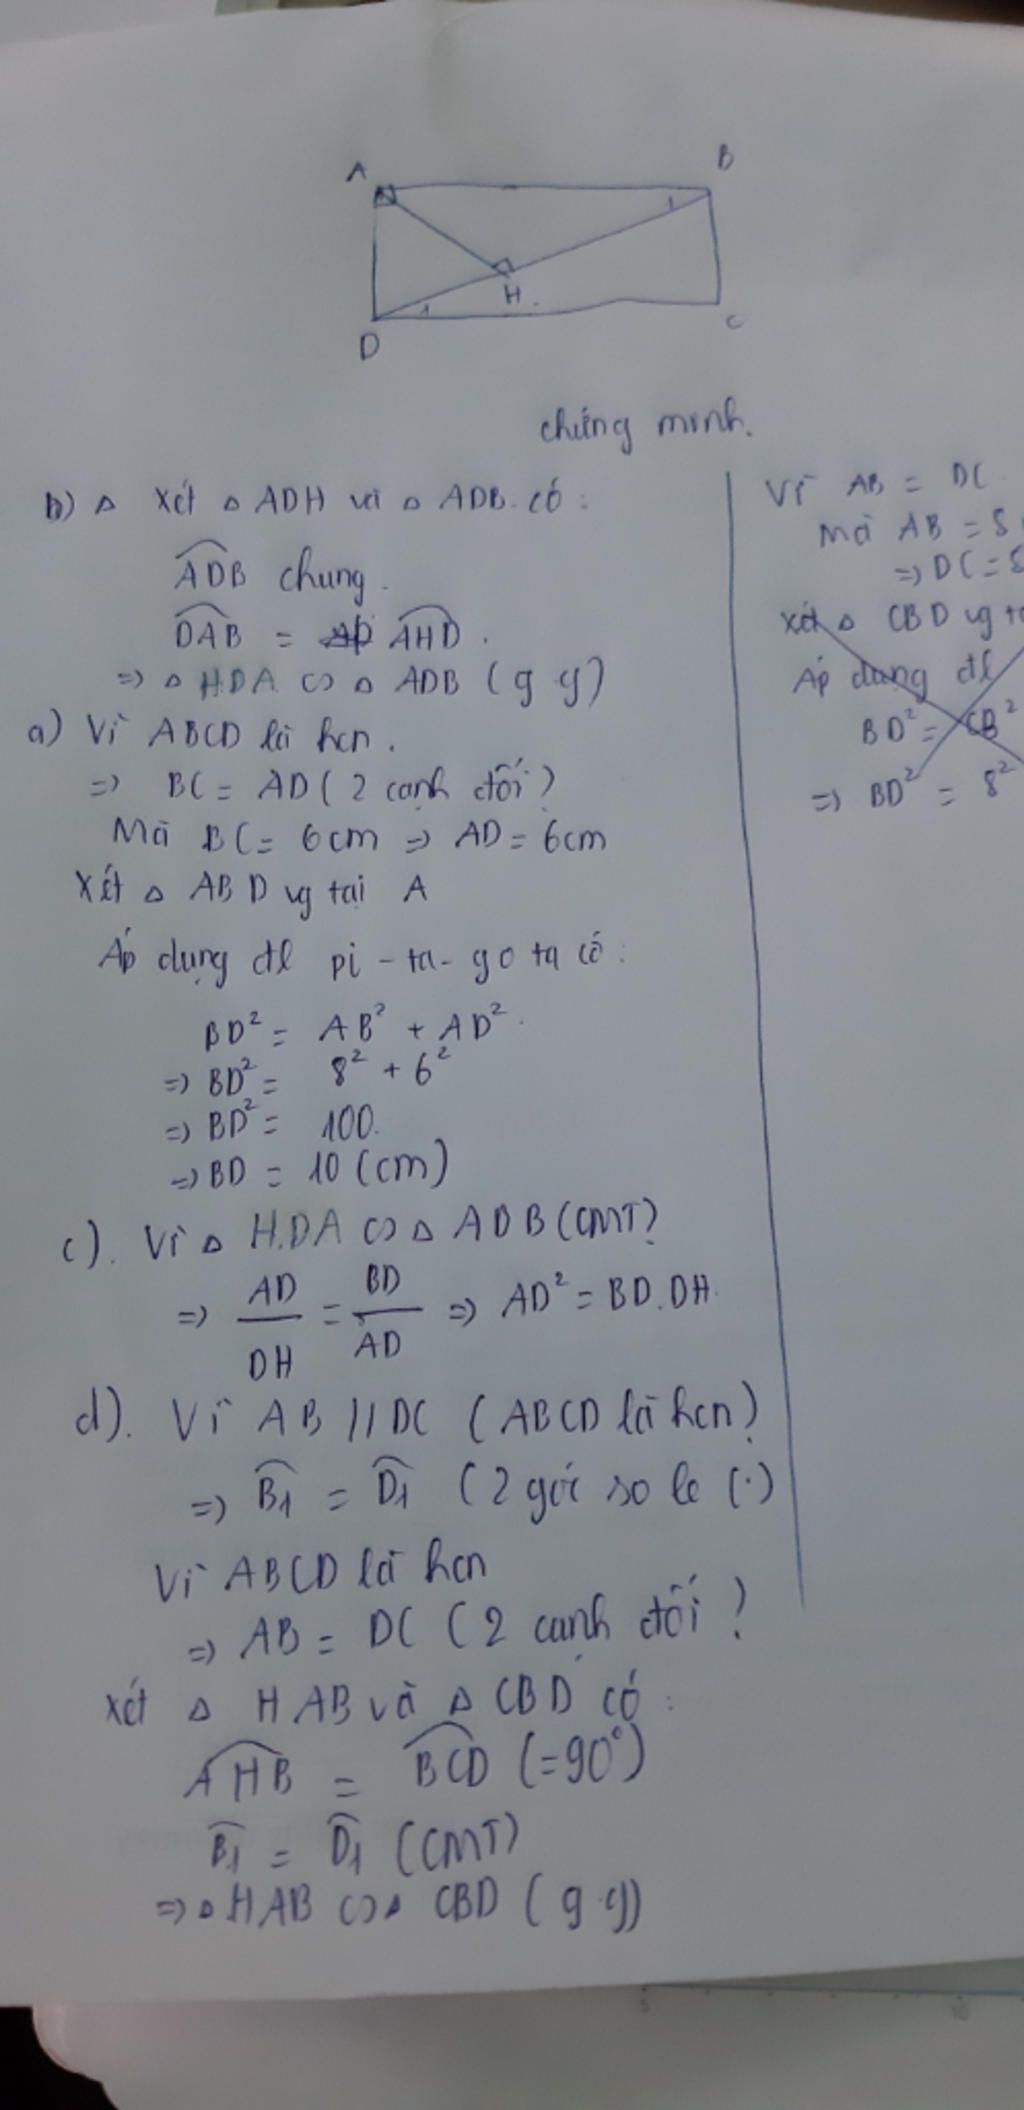 A
B
H.
D
C
chứng minh.
b) Δ Xét Δ ADH và Δ ADB. có:
ADB chung.
DAB = AHD.
=> Δ HDA ∽ Δ ADB (g g)
a) Vì ABCD là hcn.
=> BC = AD (2 cạnh đối)
Mà BC = 6cm => AD = 6cm
Xét Δ ABD vg tại A
Áp dụng đl pi-ta-go ta có:
BD² = AB² + AD².
=> BD² = 8² + 6²
=> BD² = 100.
=> BD = 10 (cm)
c). Vì Δ HDA ∽ Δ ADB (CMT)
=> AD/DH = BD/AD => AD² = BD.DH.
d). Vì AB // DC (ABCD là hcn)
=> B1 = D1 (2 góc so le (.)
Vì ABCD là hcn
=> AB = DC (2 cạnh đối)
Xét Δ HAB và Δ CBD có:
AHB = BCD (=90°)
B1 = D1 (CMT)
=> Δ HAB ∽ Δ CBD (g.g)
Vì AB = DC.
Mà AB = 8
=> DC = 8
xét Δ CBD vg
Áp dụng đl
BD² = CB²
=> BD² = 8²
5
10